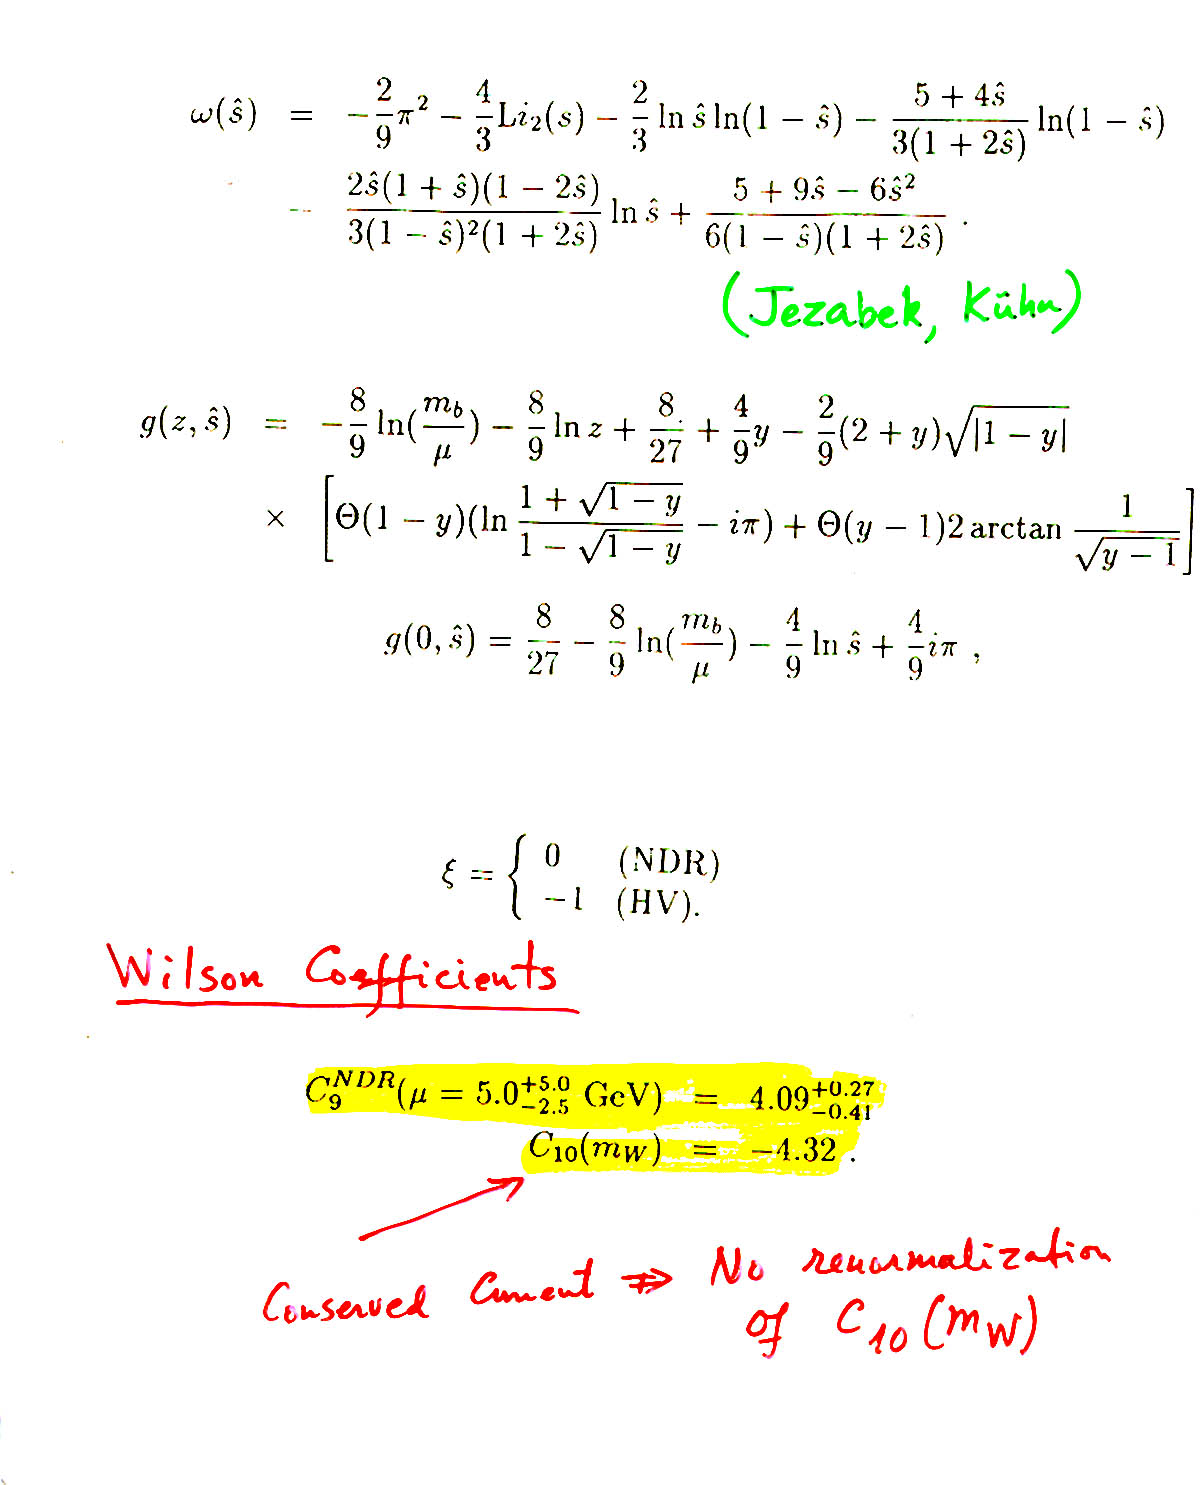 ω(ŝ) = -2/9 π² - 4/3 Li₂(s) - 2/3 ln ŝ ln(1 - ŝ) - (5 + 4ŝ)/(3(1 + 2ŝ)) ln(1 - ŝ)
- (2ŝ(1 + ŝ)(1 - 2ŝ))/(3(1 - ŝ)²(1 + 2ŝ)) ln ŝ + (5 + 9ŝ - 6ŝ²)/(6(1 - ŝ)(1 + 2ŝ)) .
(Jezabek, Kühn)
g(z, ŝ) = -8/9 ln(m_b/μ) - 8/9 ln z + 8/27 + 4/9 y - 2/9 (2 + y)√|1 - y|
× [Θ(1 - y)(ln (1 + √(1 - y))/(1 - √(1 - y)) - iπ) + Θ(y - 1)2 arctan 1/√(y - 1)]
g(0, ŝ) = 8/27 - 8/9 ln(m_b/μ) - 4/9 ln ŝ + 4/9 iπ ,
ξ = { 0 (NDR)
-1 (HV).
Wilson Coefficients
C₉^NDR(μ = 5.0 +5.0 -2.5 GeV) = 4.09 +0.27 -0.41
C₁₀(m_W) = -4.32 .
Conserved Current ⇒ No renormalization
of C₁₀(m_W)